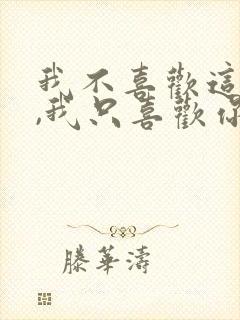 我不喜歡這
,我只喜歡你
滕華濤